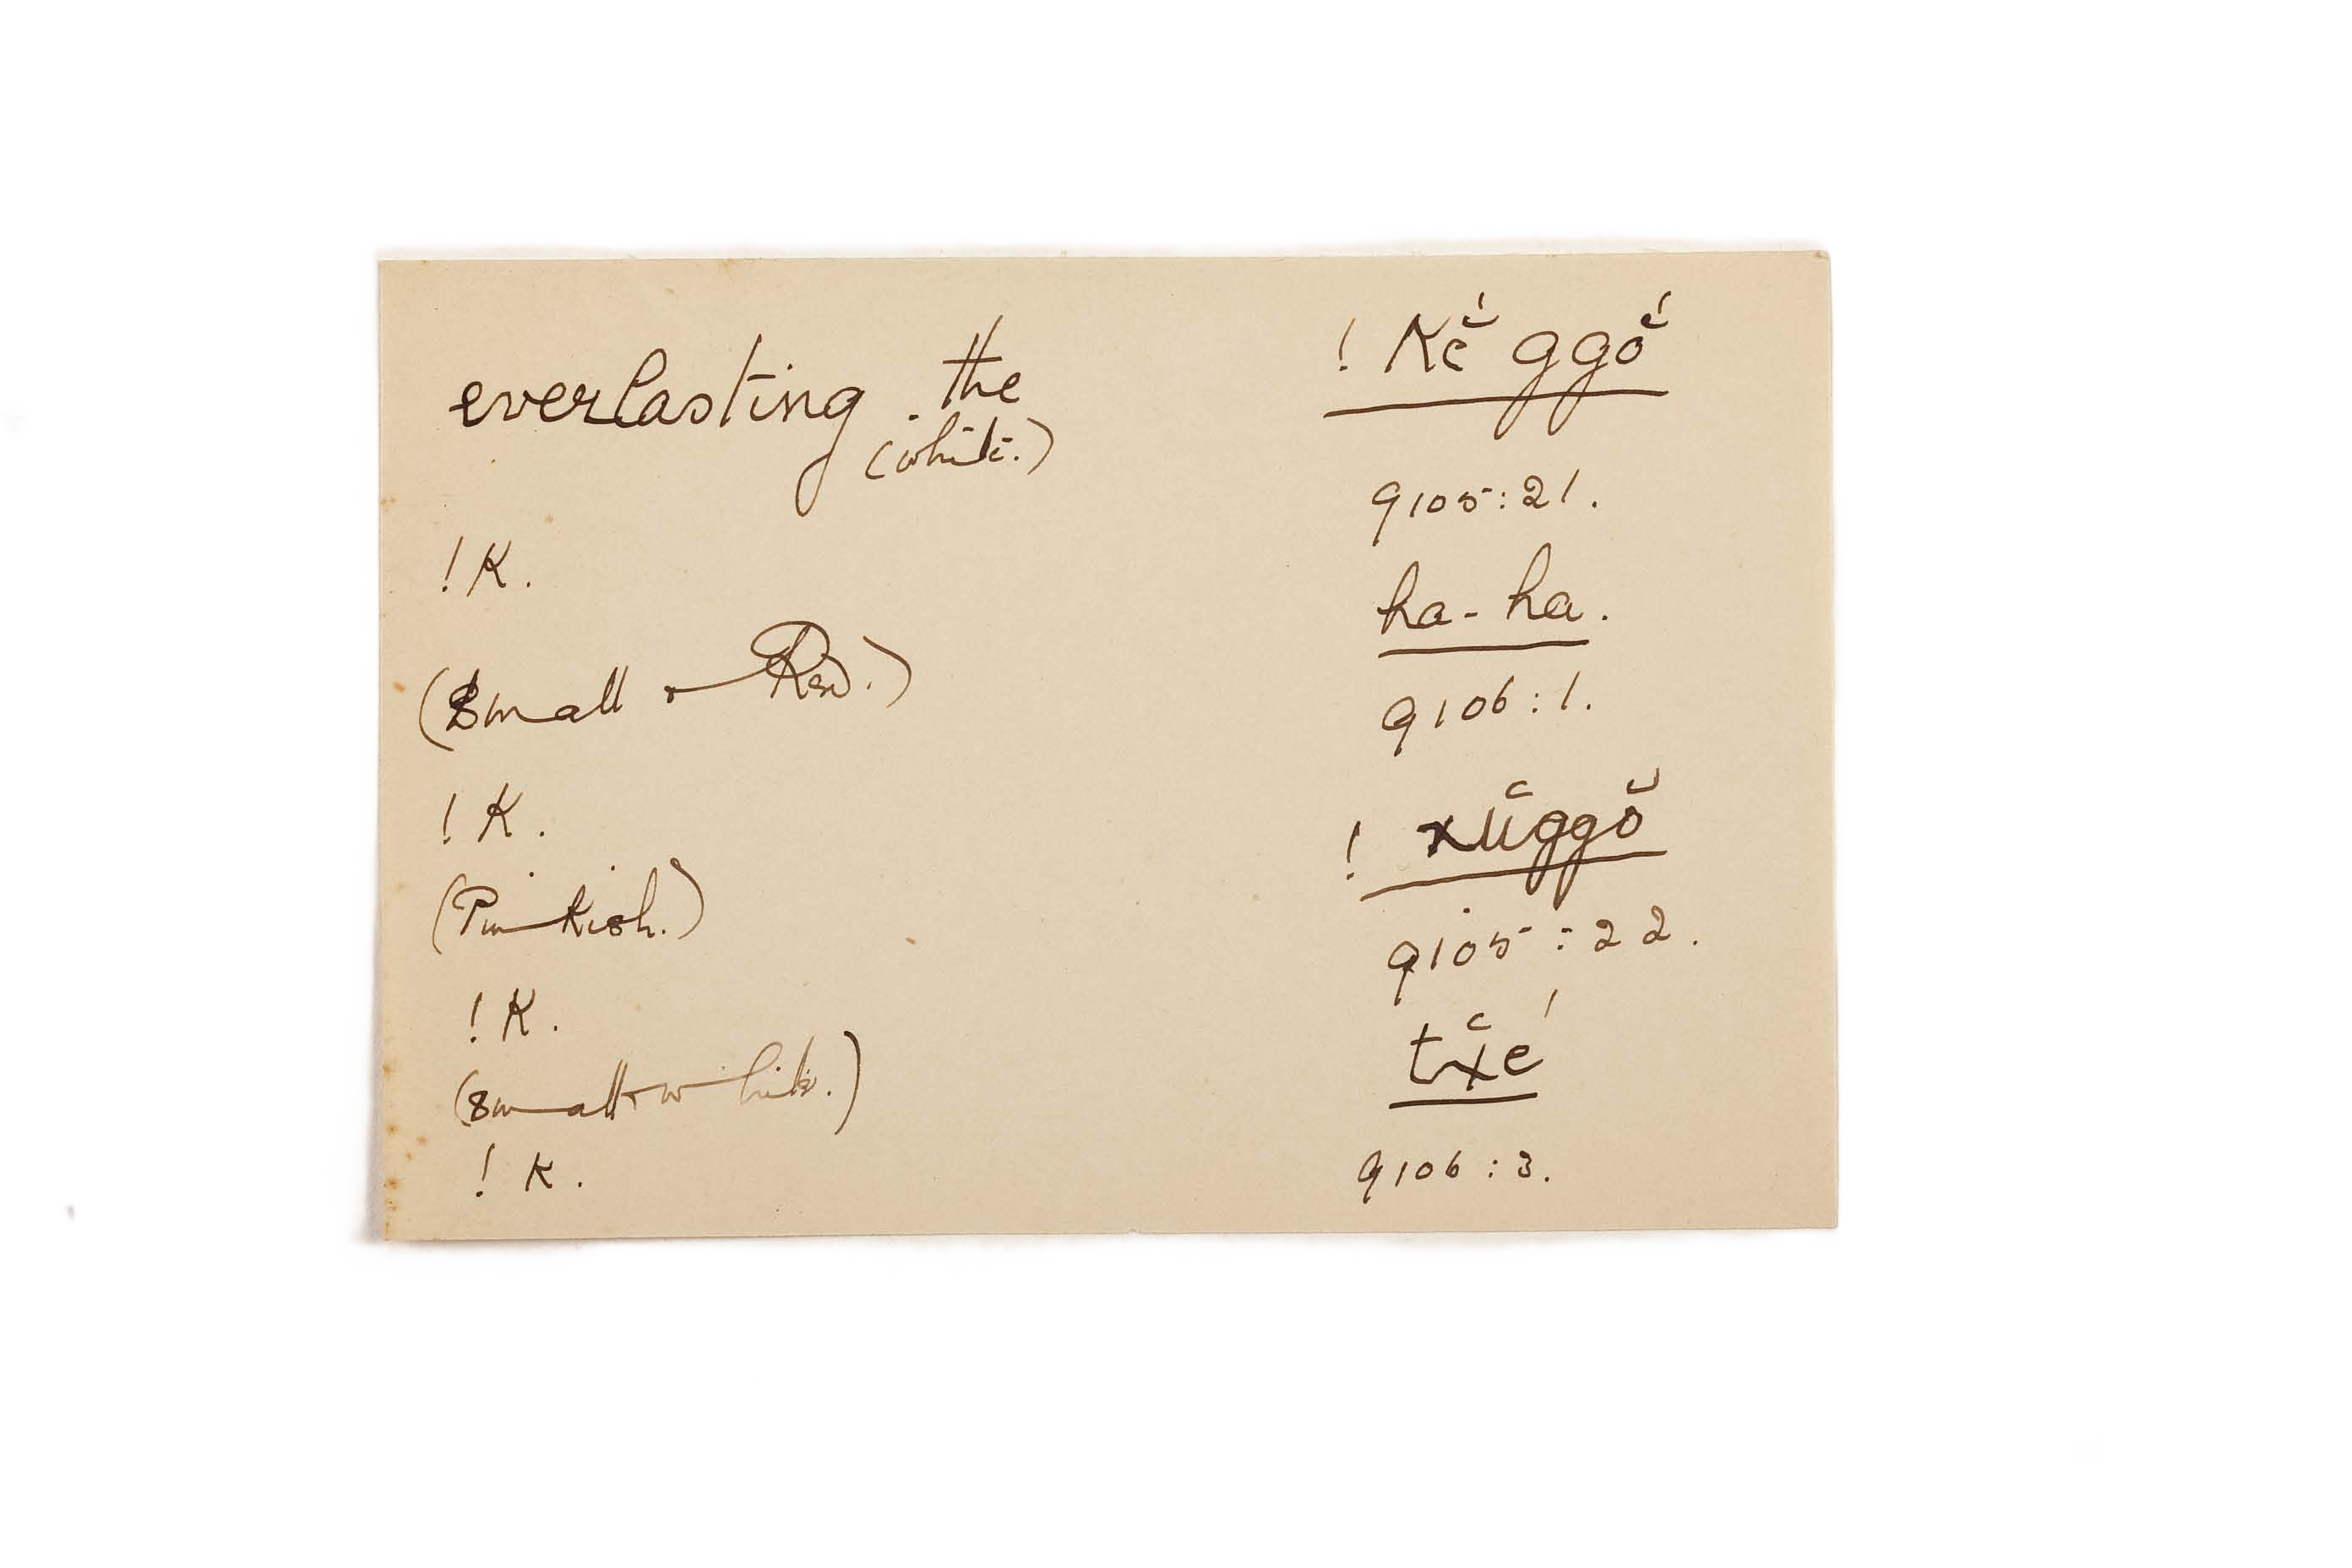 everlasting. the ! Kĕ́ ggŏ́
(white.)
9105:21.
! K. ha-ha.
(Small & Red.) 9106:1.
! K. ! xŭggŏ
(Pinkish.) 9105:22.
! K. tx̆é
(small & white.)
! K. 9106:3.